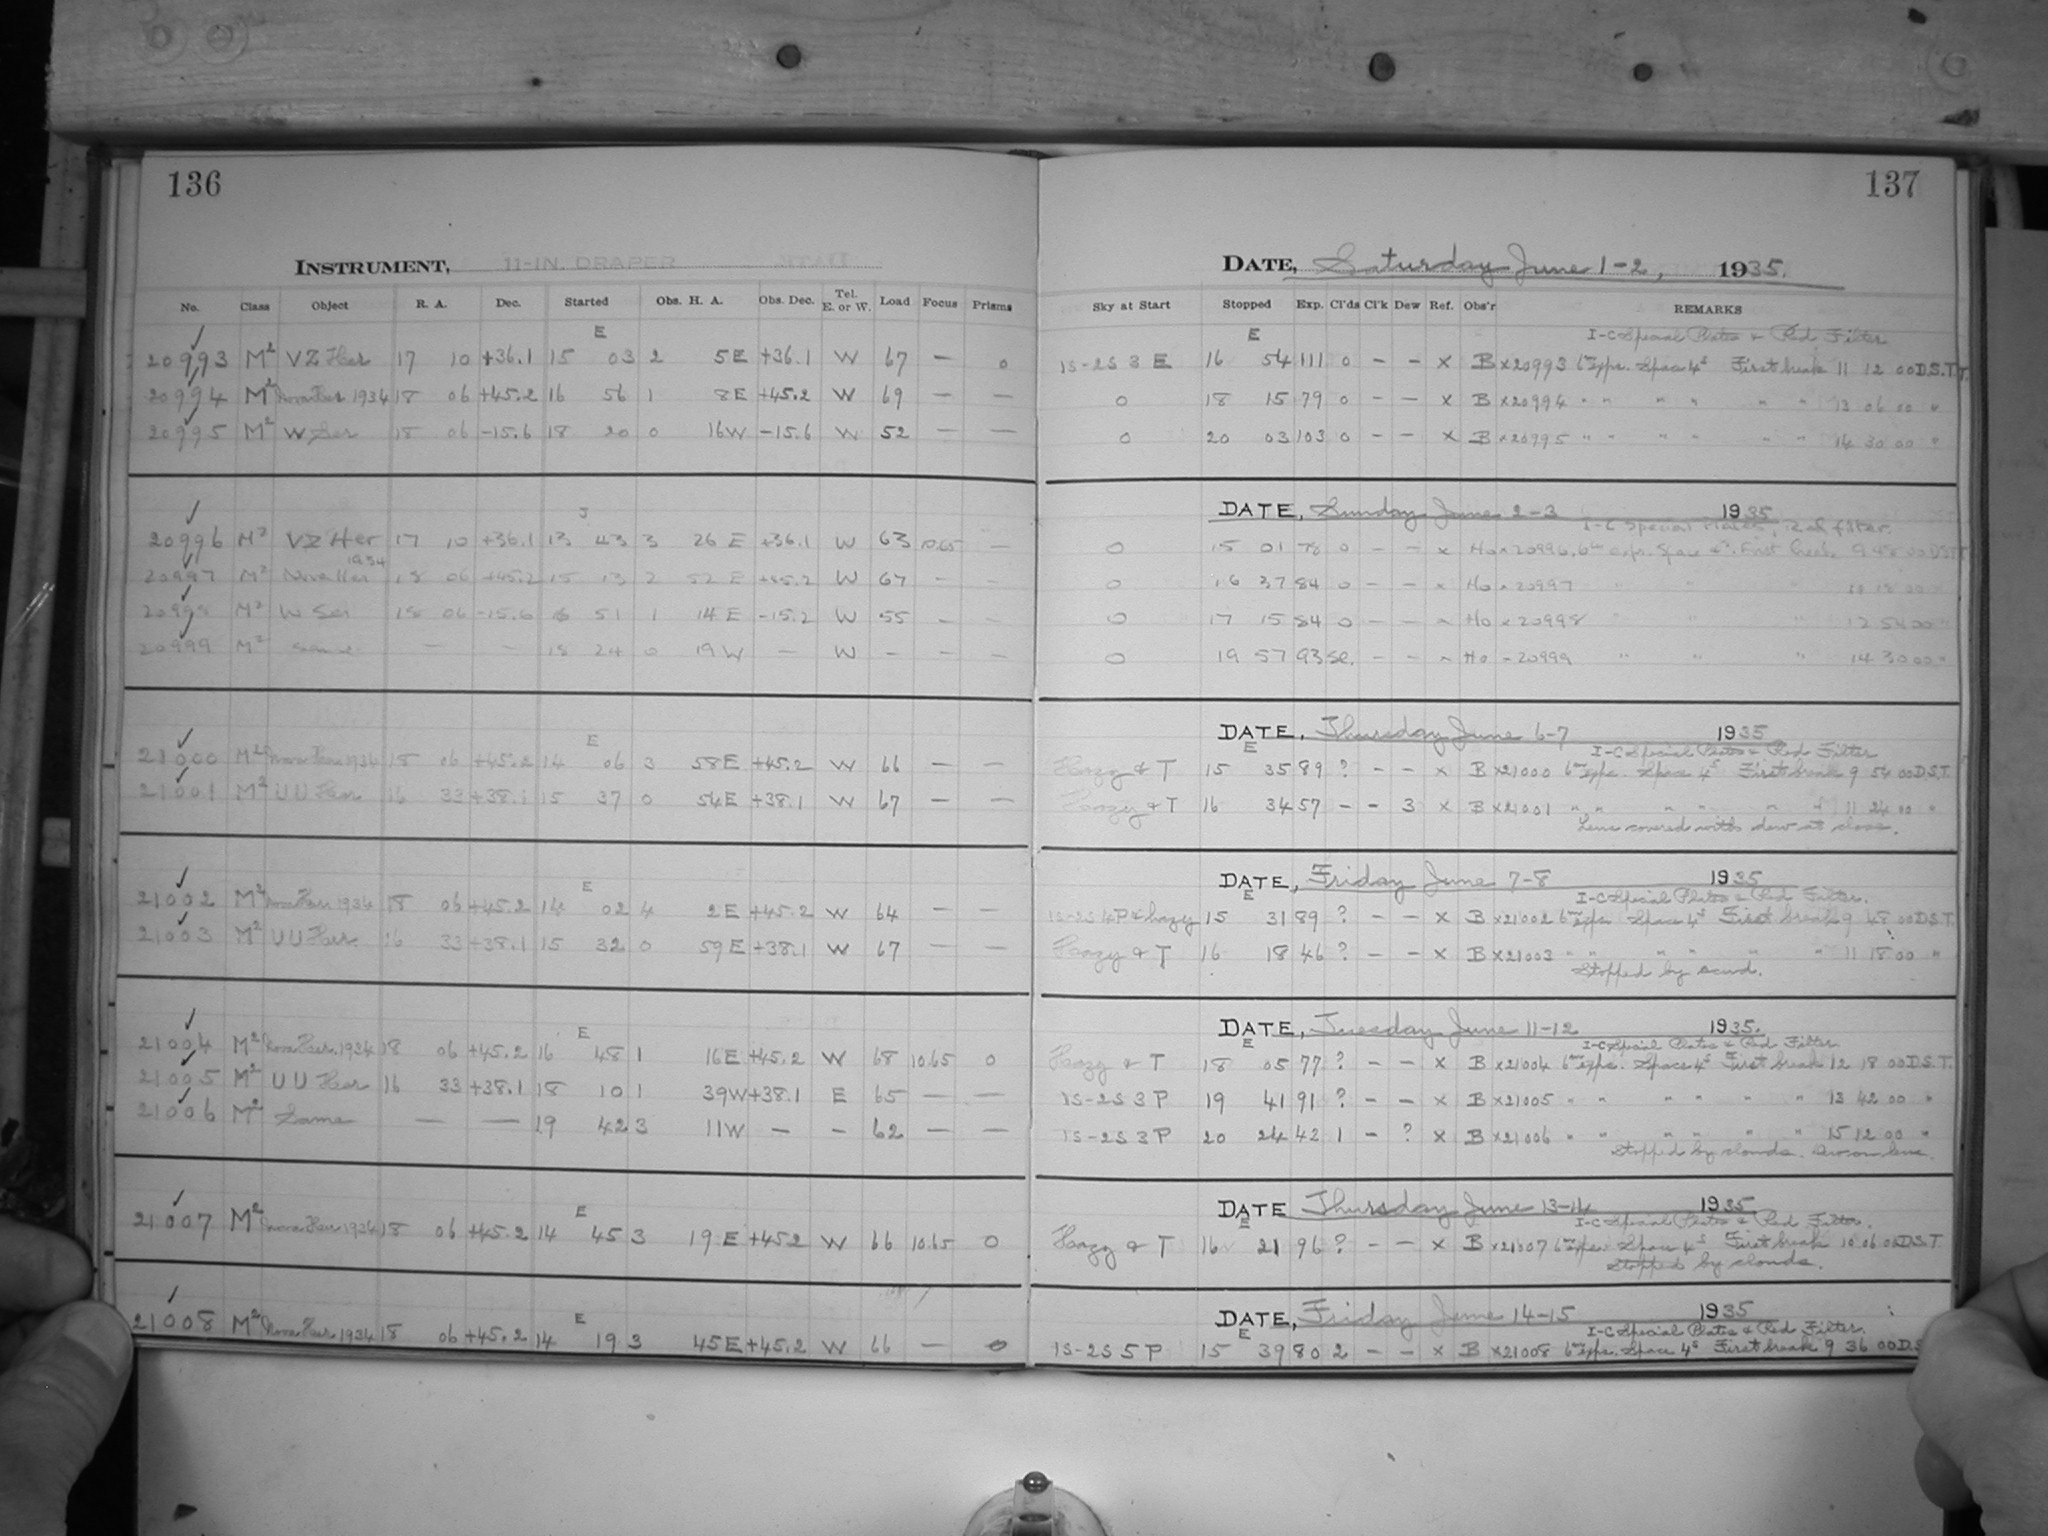 136
INSTRUMENT, 11-IN. DRAPER
No. Class Object R. A. Dec. Started Obs. H. A. Obs. Dec. Tel. E. or W. Load Focus Prisms
E
20993 M² VZ Her 17 10 +36.1 15 03 2 5E +36.1 W 67 — 0
20994 M² Nova Her 1934 18 06 +45.2 16 56 1 8E +45.2 W 69 — —
20995 M² W Ser 18 06 -15.6 18 20 0 16W -15.6 W 52 — —
J
20996 M² VZ Her 17 10 +36.1 13 43 3 26 E +36.1 W 63 10.65 —
20997 M² Nova Her 1934 18 06 +45.2 15 13 2 52 E +45.2 W 67 - -
20998 M² W Ser 18 06 -15.6 51 1 14 E -15.2 W 55 - -
20999 M² same — — 18 24 0 19 W — W - - -
E
21000 M² Nova Her 1934 18 06 +45.2 14 06 3 58E +45.2 W 66 — —
21001 M² UU Her 16 33 +38.1 15 37 0 54E +38.1 W 67 — —
E
21002 M² Nova Her 1934 18 06 +45.2 14 02 4 2E +45.2 W 64 — —
21003 M² UU Her. 16 33 +38.1 15 32 0 59E +38.1 W 67 — —
E
21004 M² Nova Her. 1934 18 06 +45.2 16 48 1 16E +45.2 W 68 10.65 0
21005 M² UU Her 16 33 +38.1 18 10 1 39W +38.1 E 65 — —
21006 M² Same — — 19 42 3 11W — - 62 — —
E
21007 M² Nova Her 1934 18 06 +45.2 14 45 3 19E +45.2 W 66 10.65 0
E
21008 M² Nova Her. 1934 18 06 +45.2 14 19 3 45E +45.2 W 66 —
137
DATE, Saturday June 1-2, 1935.
Sky at Start Stopped Exp. Cl'ds Cl'k Dew Ref. Obs'r REMARKS
E I-C Special Plates & Red Filter
1S-2S 3 E 16 54 111 0 - - x B x20993 6 Exps. Space 4ˢ First break 11 12 00 D.S.T.
0 18 15 79 0 - - x B x20994 " " " " " " 13 06 00 "
0 20 03 103 0 - - x B x20995 " " " " " " 14 30 00 "
DATE, Sunday June 2-3 1935
I-C Special Plates, Red filter.
0 15 01 78 0 - - x Ho x20996. 6 exps. Space 4ˢ. First break 9 48 00 D.S.T.
0 16 37 84 0 - - x Ho x20997 " " " 00 "
0 17 15 84 0 - - x Ho x20998 " " " 12 54 00 "
0 19 57 93 Sc. - - x Ho -20999 " " " 14 30 00 "
DATE, Thursday June 6-7 1935
E I-C Special Plates & Red Filter
Hazy & T 15 35 89 ? - - x B x21000 6 Exps. Space 4ˢ First break 9 54 00 D.S.T.
Hazy & T 16 34 57 - - 3 x B x21001 " " " " " " 11 24 00 "
Lens covered with dew at close.
DATE, Friday June 7-8 1935
E I-C Special Plates & Red Filter.
1S-2S 4P & hazy 15 31 89 ? - - x B x21002 6 Exps. Space 4ˢ First break 9 48 00 D.S.T.
Hazy & T 16 18 46 ? - - x B x21003 " " " " " " 11 18 00 "
Stopped by scud.
DATE, Tuesday June 11-12 1935.
E I-C Special Plates & Red Filter
Hazy & T 18 05 77 ? - - x B x21004 6 Exps. Space 4ˢ First break 12 18 00 D.S.T.
1S-2S 3 P 19 41 91 ? - - x B x21005 " " " " " " 13 42 00 "
1S-2S 3 P 20 24 42 1 - ? x B x21006 " " " " " " 15 12 00 "
Stopped by clouds. Dew on lens.
DATE Thursday June 13-14 1935
E I-C Special Plates & Red Filter.
Hazy & T 16 21 96 ? - - x B x21007 6 Exps. Space 4ˢ First break 10 06 00 D.S.T.
Stopped by clouds.
DATE, Friday June 14-15 1935
E I-C Special Plates & Red Filter.
1S-2S 5 P 15 39 80 2 - - x B x21008 6 Exps. Space 4ˢ First break 9 36 00 D.S